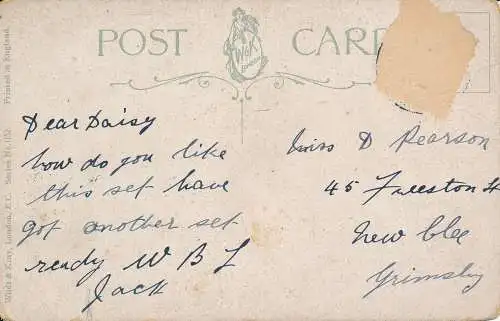 POST CARD
W&K
LONDON
Dear Daisy
how do you like
this set have
got another set
ready W B L
Jack
Miss D Pearson
45 Freeston St
New Clee
Grimsby
Wildt & Kray, London, E.C. Series No. 152 Printed in England.